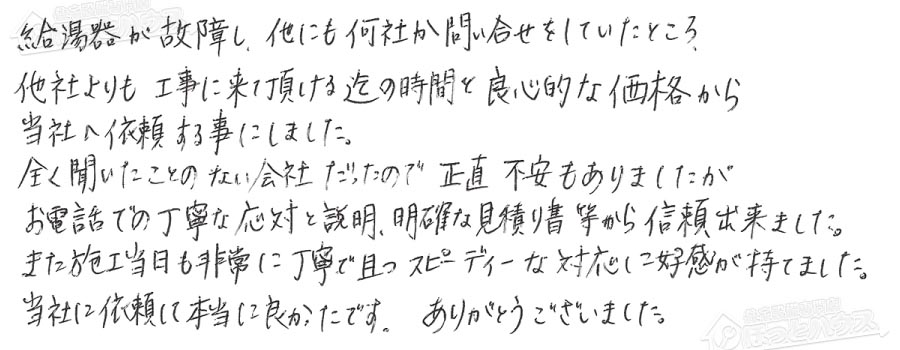 給湯器が故障し、他にも何社か問い合せをしていたところ、
他社よりも工事に来て頂ける迄の時間と良心的な価格から
当社へ依頼する事にしました。
全く聞いたことのない会社だったので正直不安もありましたが
お電話での丁寧な応対と説明、明確な見積り書等から信頼出来ました。
また施工当日も非常に丁寧で且つスピーディーな対応に好感が持てました。
当社に依頼して本当に良かったです。ありがとうございました。